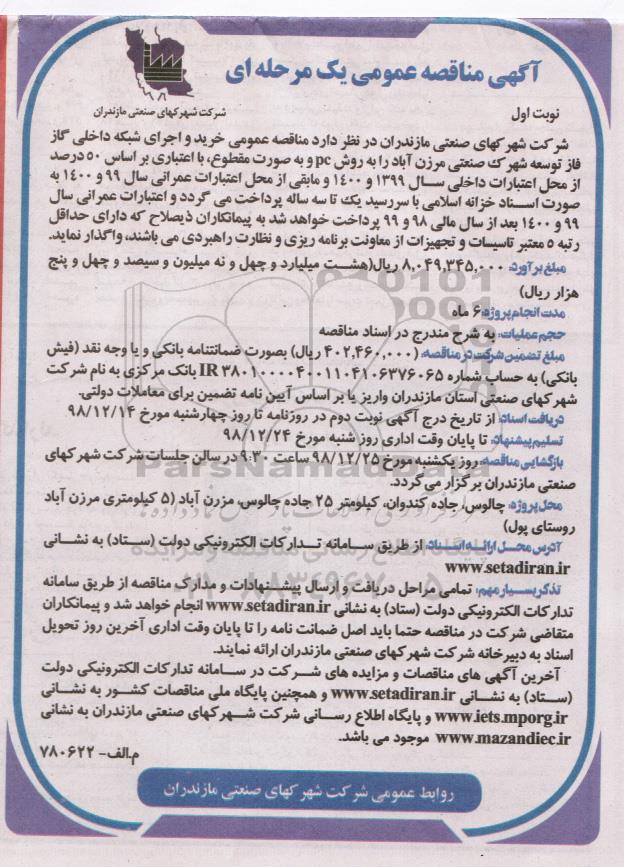 آگهی مناقصه عمومی یک مرحله ای
شرکت شهرکهای صنعتی مازندران
نوبت اول
شرکت شهرکهای صنعتی مازندران در نظر دارد مناقصه عمومی خرید و اجرای شبکه داخلی گاز
فاز توسعه شهرک صنعتی مرزن آباد را به روش pc و به صورت مقطوع، با اعتباری بر اساس ۵۰ درصد
از محل اعتبارات داخلی سال ۱۳۹۹ و ۱۴۰۰ و مابقی از محل اعتبارات عمرانی سال ۹۹ و ۱۴۰۰ به
صورت اسناد خزانه اسلامی با سررسید یک تا سه ساله پرداخت می گردد و اعتبارات عمرانی سال
۹۹ و ۱۴۰۰ بعد از سال مالی ۹۸ و ۹۹ پرداخت خواهد شد به پیمانکاران ذیصلاح که دارای حداقل
رتبه ۵ معتبر تاسیسات و تجهیزات از معاونت برنامه ریزی و نظارت راهبردی می باشند، واگذار نماید.
مبلغ برآورد: ۸,۰۴۹,۳۴۵,۰۰۰ ریال(هشت میلیارد و چهل و نه میلیون و سیصد و چهل و پنج
هزار ریال)
مدت انجام پروژه: ۶ ماه
حجم عملیات: به شرح مندرج در اسناد مناقصه
مبلغ تضمین شرکت در مناقصه: (۴۰۲,۴۶۰,۰۰۰ ریال) بصورت ضمانتنامه بانکی و یا وجه نقد (فیش
بانکی) به حساب شماره IR ۳۸۰۱۰۰۰۰۴۰۰۱۱۰۴۱۰۶۳۷۶۰۶۵ بانک مرکزی به نام شرکت
شهرکهای صنعتی استان مازندران واریز یا بر اساس آیین نامه تضمین برای معاملات دولتی.
دریافت اسناد: از تاریخ درج آگهی نوبت دوم در روزنامه تا روز چهارشنبه مورخ ۹۸/۱۲/۱۴
تسلیم پیشنهاد: تا پایان وقت اداری روز شنبه مورخ ۹۸/۱۲/۲۴
بازگشایی مناقصه: روز یکشنبه مورخ ۹۸/۱۲/۲۵ ساعت ۹:۳۰ در سالن جلسات شرکت شهرکهای
صنعتی مازندران برگزار می گردد.
محل پروژه: چالوس، جاده کندوان، کیلومتر ۲۵ جاده چالوس، مزرن آباد (۵ کیلومتری مرزن آباد
روستای پول)
آدرس محل ارائه اسناد: از طریق سامانه تدارکات الکترونیکی دولت (ستاد) به نشانی
www.setadiran.ir
تذکر بسیار مهم: تمامی مراحل دریافت و ارسال پیشنهادات و مدارک مناقصه از طریق سامانه
تدارکات الکترونیکی دولت (ستاد) به نشانی www.setadiran.ir انجام خواهد شد و پیمانکاران
متقاضی شرکت در مناقصه حتما باید اصل ضمانت نامه را تا پایان وقت اداری آخرین روز تحویل
اسناد به دبیرخانه شرکت شهرکهای صنعتی مازندران ارائه نمایند.
آخرین آگهی های مناقصات و مزایده های شرکت در سامانه تدارکات الکترونیکی دولت
(ستاد) به نشانی www.setadiran.ir و همچنین پایگاه ملی مناقصات کشور به نشانی
www.iets.mporg.ir و پایگاه اطلاع رسانی شرکت شهرکهای صنعتی مازندران به نشانی
www.mazandiec.ir موجود می باشد.
م.الف- ۷۸۰۶۲۲
روابط عمومی شرکت شهرکهای صنعتی مازندران
ParsNamadData